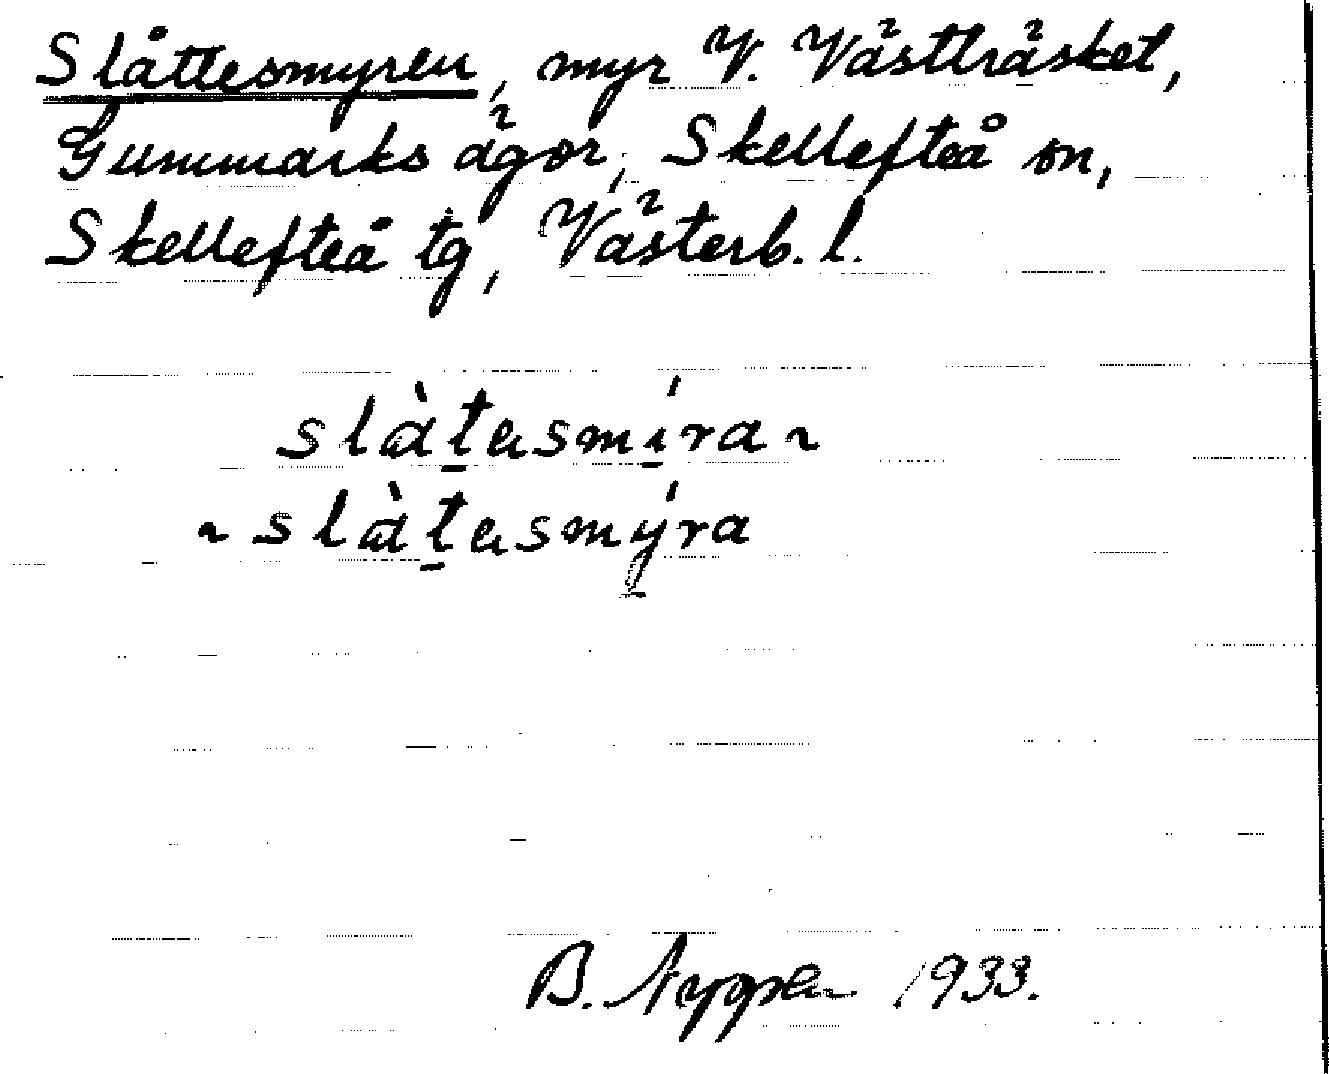 Slåttesmyren, myr V. Västträsket,
Gummarks ägor, Skellefteå sn,
Skellefteå tg, Västerb. l.
slàt̠asmí̠ra ~
~ slàt̠asmý̠ra
B. 1933.